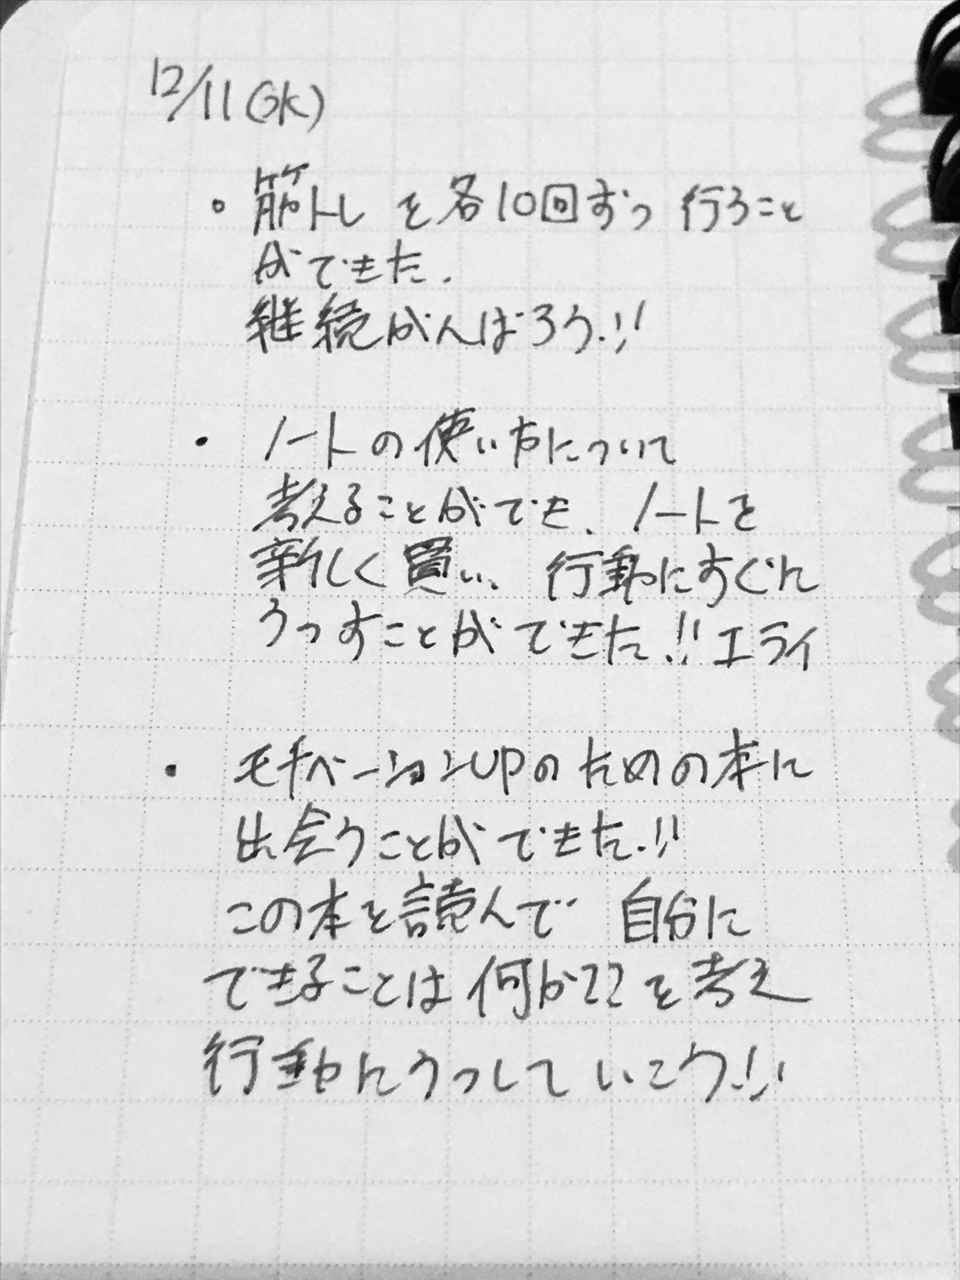 12/11(水)
・筋トレを各10回ずつ行うこと
ができた.
継続がんばろう!!
・ノートの使い方について
考えることができ、ノートを
新しく買い、行動にすぐに
うつすことができた!!エライ
・モチベーションUPのための本に
出会うことができた!!
この本を読んで自分に
できることは何か??を考え
行動にうつしていこう!!